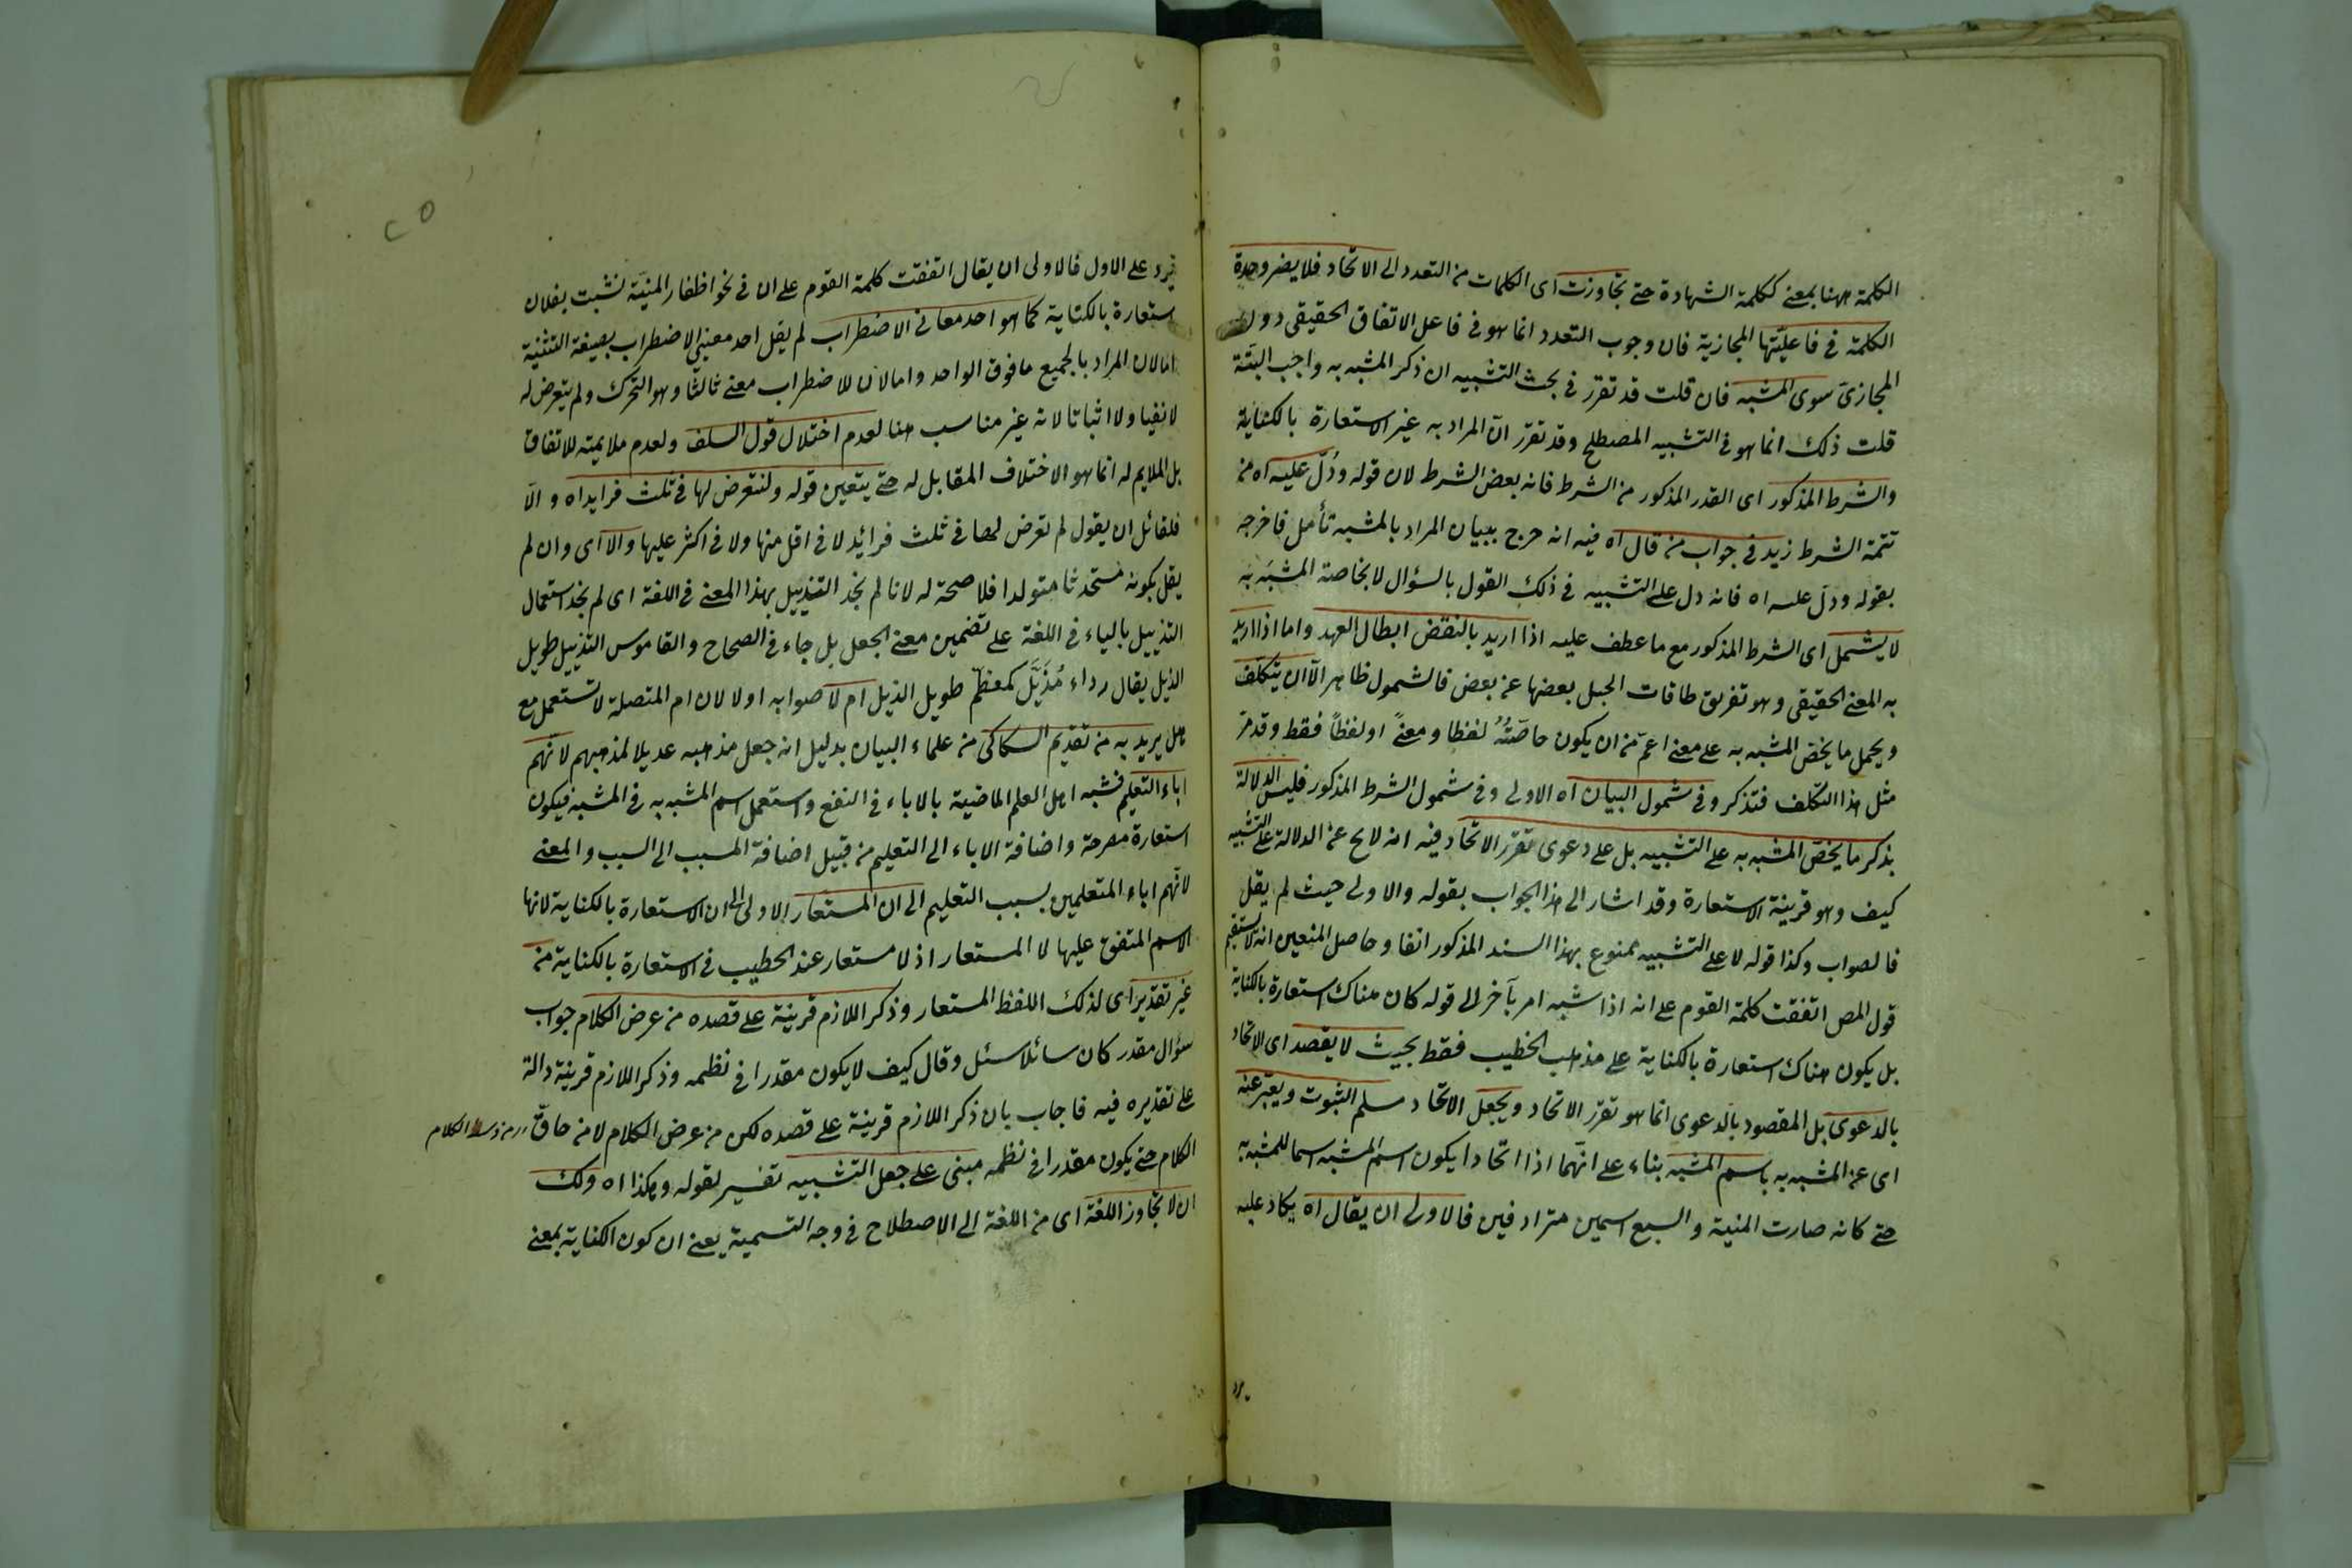 الكلمة ههنا بمعنى ككلمة الشهادة حتى تجاوزت اى الكلمات من التعدد الى الاتحاد فلا يضر وحدة
الكلمة فى فاعليتها المجازية فان وجوب التعدد انما هو فى فاعل الاتفاق الحقيقى دون
المجازى سوى المشبه فان قلت قد تقرر فى بحث التشبيه ان ذكر المشبه به واجب البتة
قلت ذلك انما هو فى التشبيه المصطلح وقد تقرر انّ المراد به غير الاستعارة بالكناية
والشرط المذكور اى القدر المذكور من الشرط فانه بعض الشرط لان قوله ودُلّ عليه اه من
تتمة الشرط زيد فى جواب من قال اه فيه انه خرج ببيان المراد بالمشبه تأمل فاخرجه
بقوله ودلّ عليه اه فانه دل على التشبيه فى ذلك القول بالسؤال لا بخاصة المشبَه به
لا يشمل اى الشرط المذكور مع ما عطف عليه اذا اريد بالنقض ابطال العهد واما اذا اريد
به المعنى الحقيقى وهو تفريق طاقات الحبل بعضها عن بعض فالشمول ظاهر الّا ان يتكلف
ويحمل ما يخص المشبه به على معنى اعمّ من ان يكون خاصّتُهُ لفظا ومعنىً او لفظاً فقط وقد مرّ
مثل هذا التكلف فتذكر وفى شمول البيان اه الاولى وفى شمول الشرط المذكور فليس الدلالة
بذكر ما يخصّ المشبه به على التشبيه بل على دعوى تقرّر الاتحاد فيه انه لا يخ عن الدلالة على التشبيه
كيف وهو قرينة الاستعارة وقد اشار الى هذا الجواب بقوله والاولى حيث لم يقل
فالصواب وكذا قوله لا على التشبيه ممنوع بهذا السند المذكور انفا وحاصل المنعين انه لا يستقيم
قول المص اتفقت كلمة القوم على انه اذا شبه امر بآخر الى قوله كان هناك استعارة بالكناية
بل يكون هناك استعارة بالكناية على مذهب الخطيب فقط بحيث لا يقصد اى الاتحاد
بالدعوى بل المقصود بالدعوى انما هو تقرّر الاتحاد ويجعل الاتحاد مسلم الثبوت ويعبّر عنه
اى عن المشبه به باسم المشبه بناء على انّهما اذا اتحادا يكون اسم المشبه اسما للمشبه به
حتى كانه صارت المنية والسبع اسمين مترادفين فالاولى ان يقال اه يكاد عليه
يرد
فيرد على الاول فالاولى ان يقال اتفقت كلمة القوم على ان فى نحو اظفار المنيّة نشبت بفلان
استعارة بالكناية كما هو احد معانى الاضطراب لم يقل احد معنيى الاضطراب بصيغة التثنية
اما لان المراد بالجميع ما فوق الواحد واما لان للاضطراب معنى ثالثا وهو التحرك ولم يتعرض له
لا نفيا ولا اثباتا لانه غير مناسب هنا لعدم اختلال قول السلف ولعدم ملايمته للاتفاق
بل الملايم له انما هو الاختلاف المقابل له حتى يتعين قوله ولنتعرض لها فى ثلث فرايد اه والّا
فلقائل ان يقول لم تعرض لها فى ثلث فرائد لا فى اقل منها ولا فى اكثر عليها والّا اى وان لم
يقل بكونه مستحدثا متولدا فلا صحة له لانا لم نجد التذييل بهذا المعنى فى اللغة اى لم نجد استعمال
التذييل بالياء فى اللغة على تضمين معنى الجعل بل جاء فى الصحاح والقاموس التذييل طويل
الذيل يقال رداء مُذَيَّل كمعظم طويل الذيل ام لا صوابه اولا لان ام المتصلة لا تستعمل مع
هل يريد به من تقدّم السكاكى من علماء البيان بدليل انه جعل مذهبه عديلا لمذهبهم لانّهم
اباء التعليم فشبه اهل العلم الماضية بالاباء فى النفع واستعمل اسم المشبه به فى المشبه فيكون
استعارة مصرحة واضافة الاباء الى التعليم من قبيل اضافة المسبب الى السبب والمعنى
لانّهم اباء المتعلمين بسبب التعليم الى ان المستعار الاولى الى ان الاستعارة بالكناية لانها
الاسم المتفق عليها لا المستعار اذ لا مستعار عند الخطيب فى الاستعارة بالكناية من
غير تقدير اى لذلك اللفظ المستعار وذكر اللازم قرينة على قصده من عرض الكلام جواب
سؤال مقدر كان سائلا سئل وقال كيف لا يكون مقدرا فى نظمه وذكر اللازم قرينة دالة
على تقديره فيه فاجاب بان ذكر اللازم قرينة على قصده لكن من عرض الكلام لا من حاقّ
من وسط الكلام
الكلام حتى يكون مقدرا فى نظمه مبنى على جعل التشبيه تفسير لقوله وهكذا اه ولك
ان لا تجاوز اللغة اى من اللغة الى الاصطلاح فى وجه التسمية يعنى ان كون الكناية بمعنى